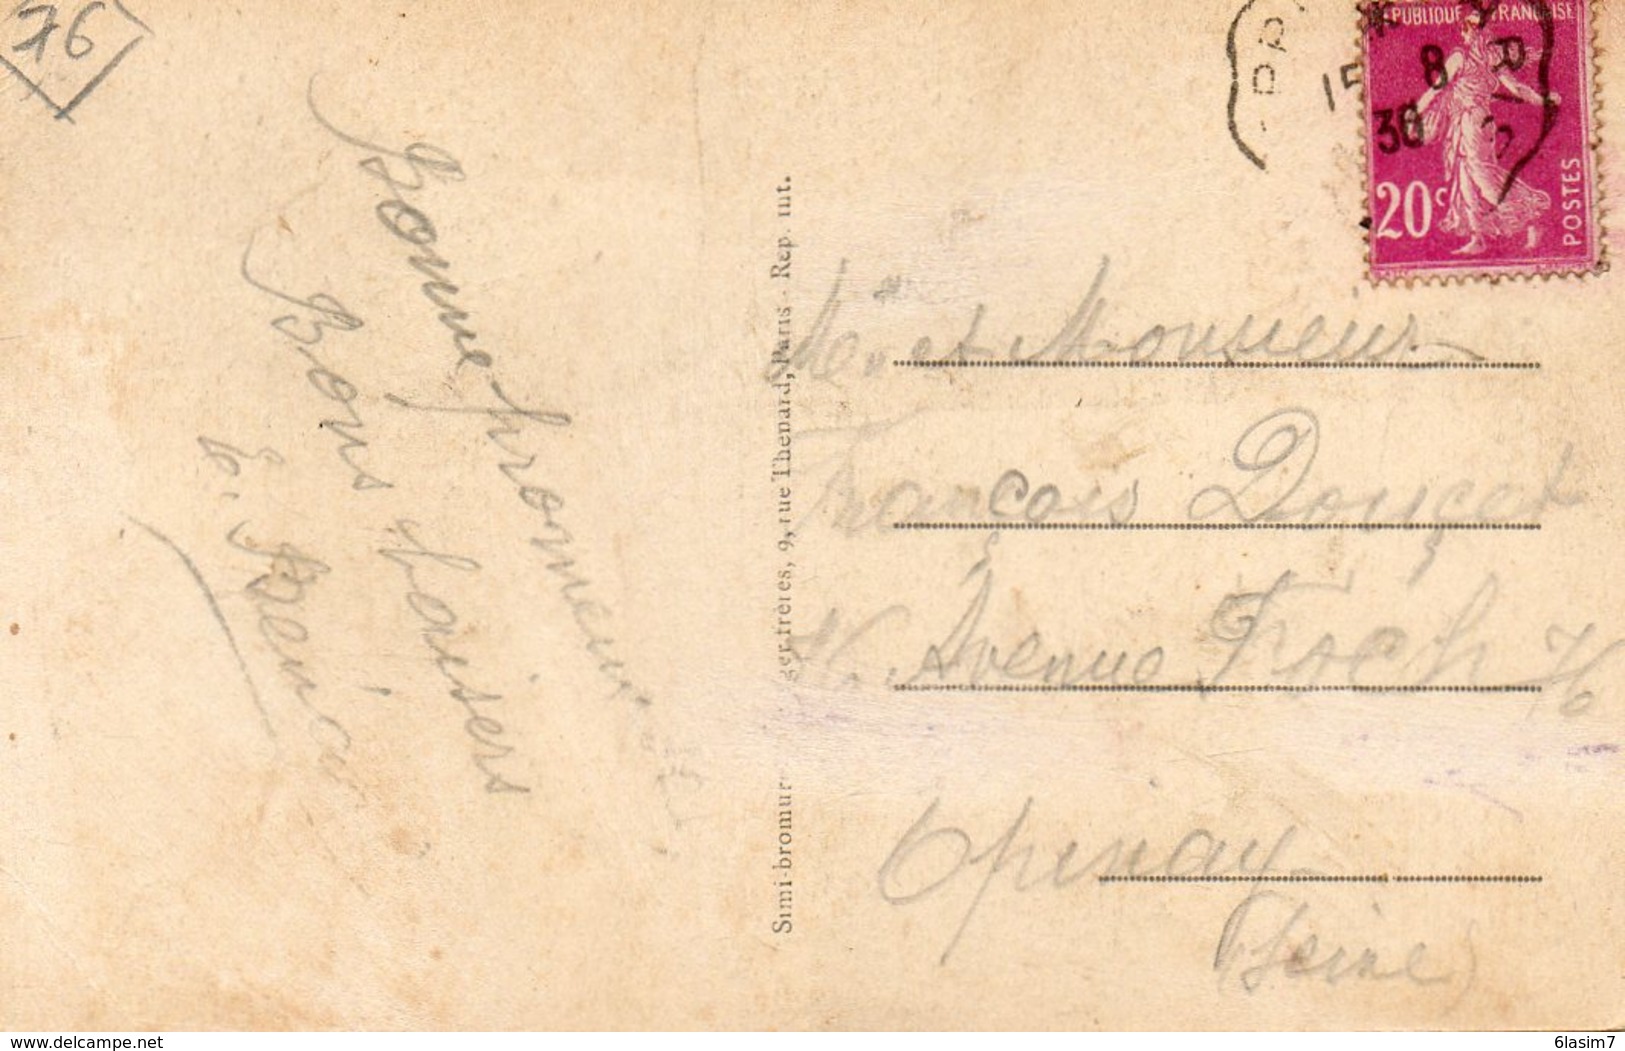 76
Bonne promenade
Bons baisers
E.
Simi-bromur ger frères, 9, rue Thénard, Paris - Rep. int.
PARIS
15 8
30
REPUBLIQUE FRANÇAISE
20c
POSTES
Me et Monsieur
François Douçet
Avenue Foch 76
Epinay
(Seine)
www.delcampe.net
6lasim7